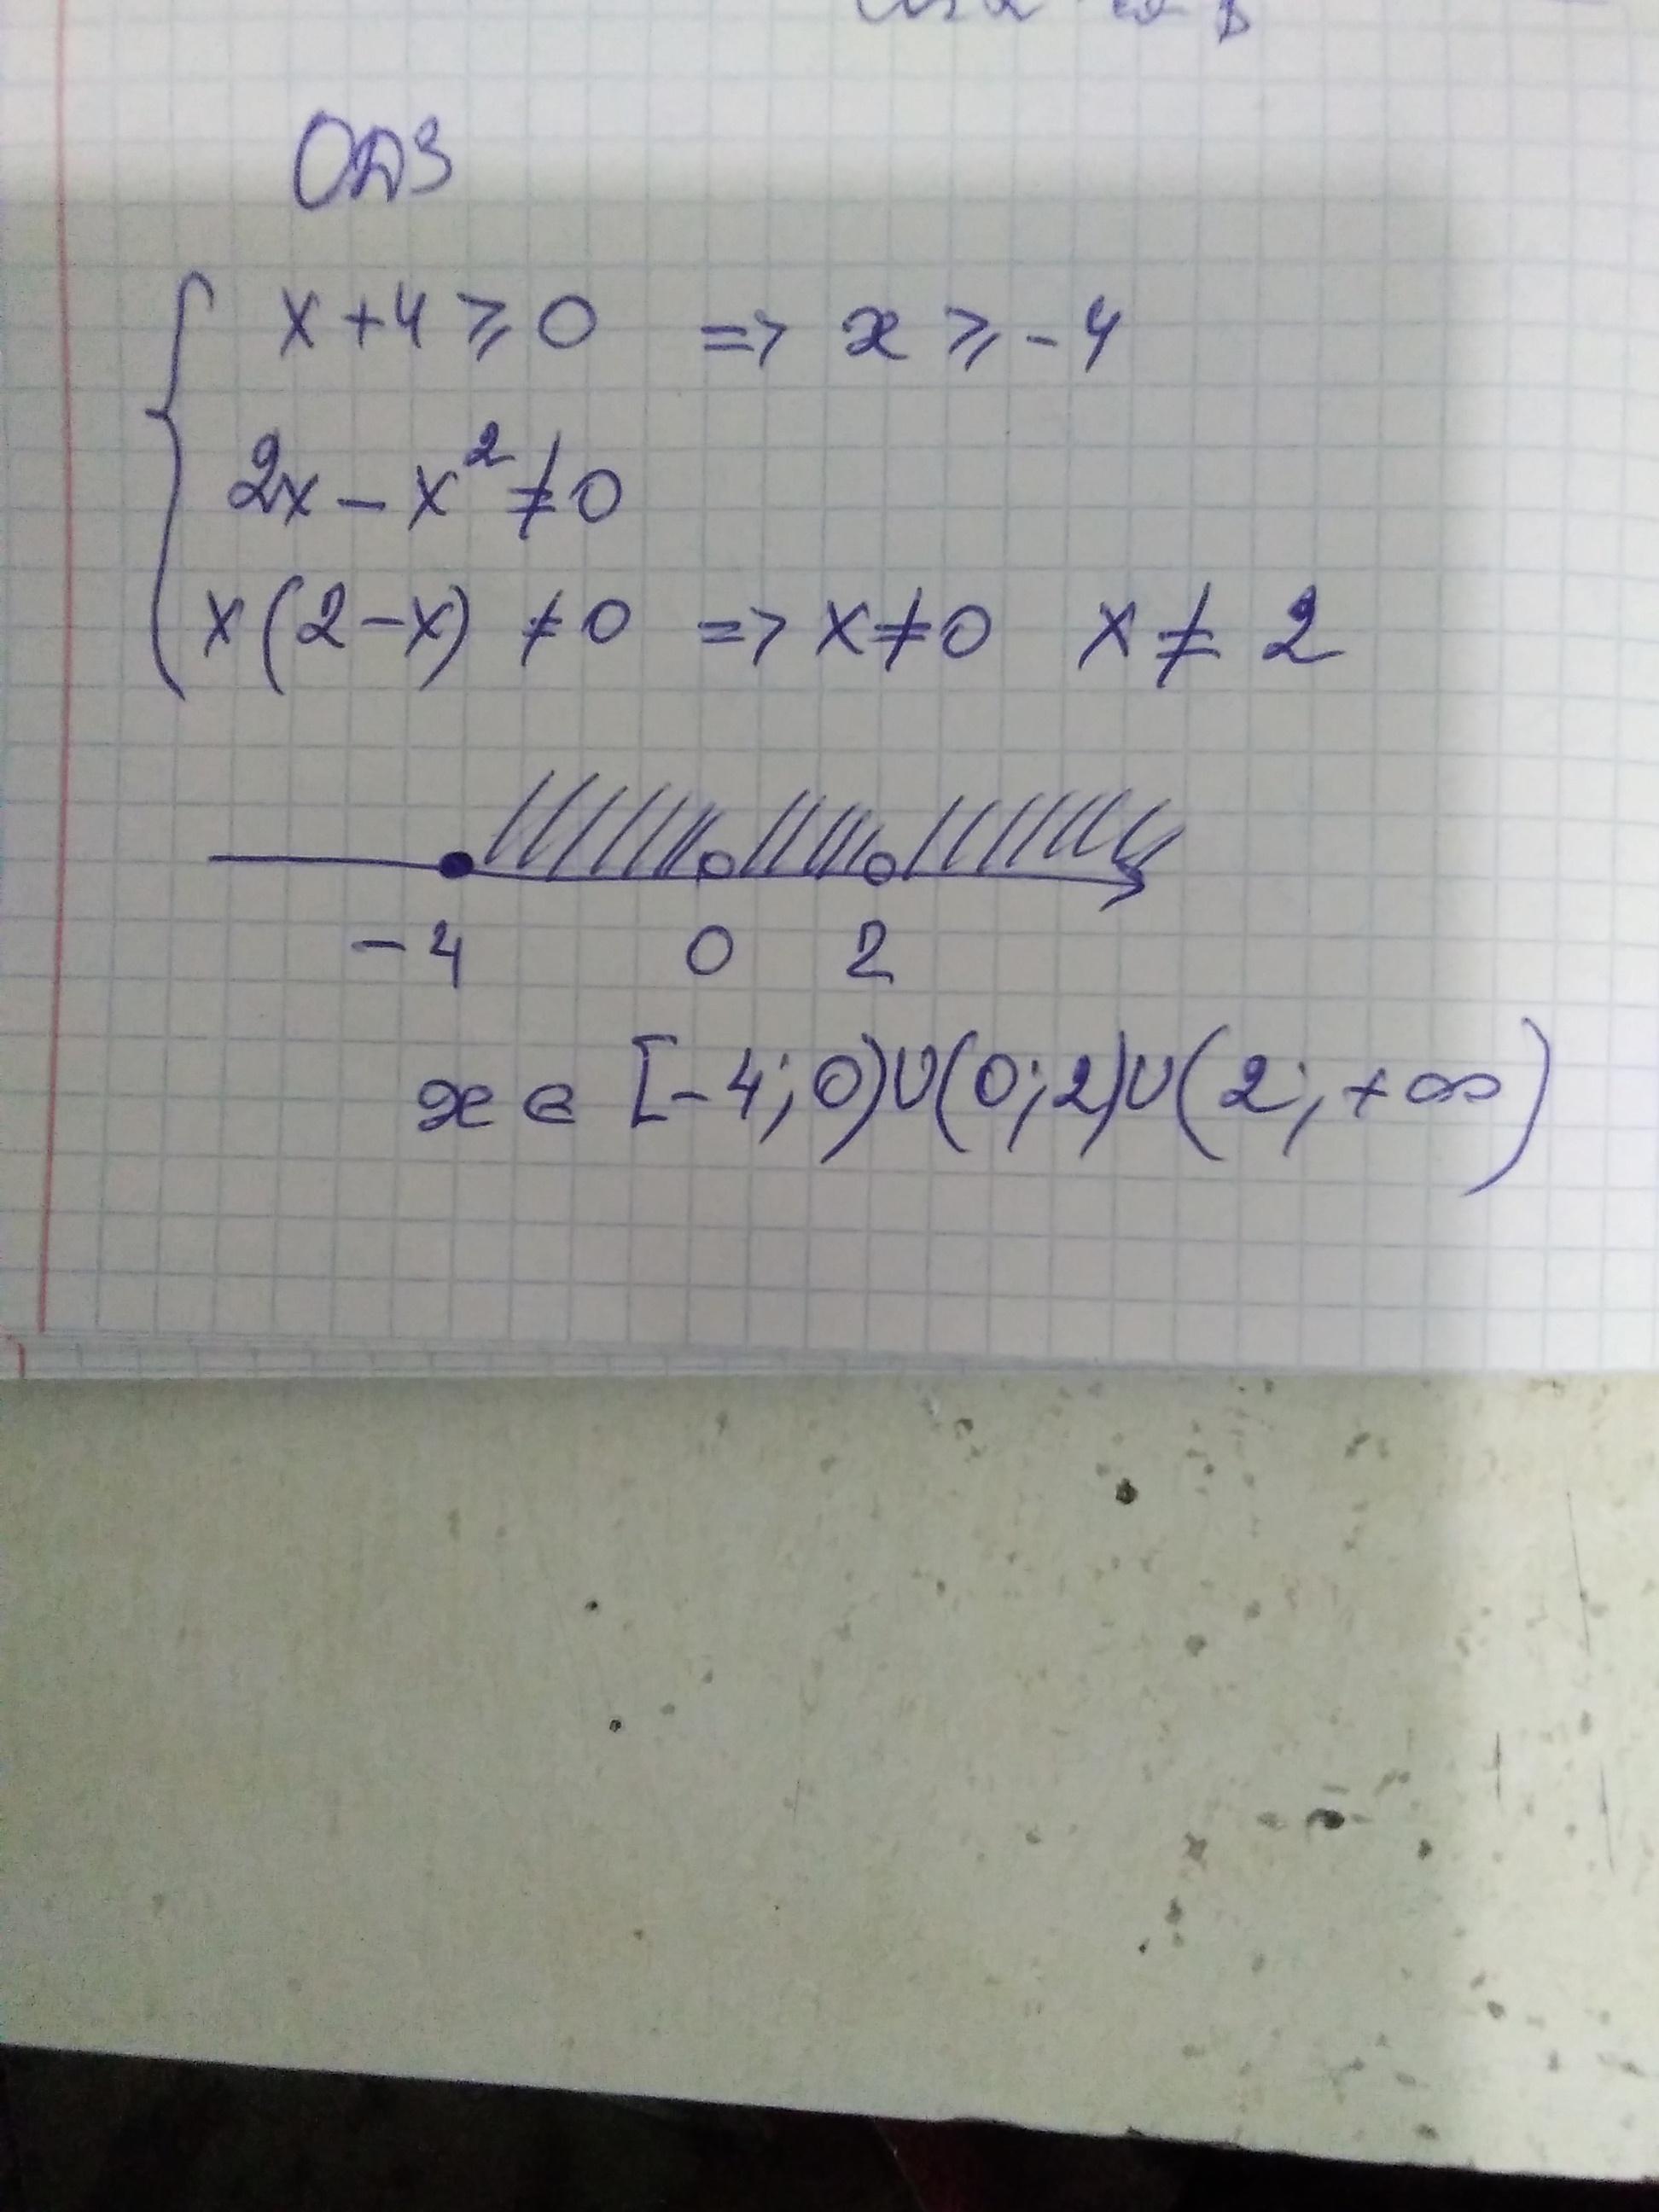 ОДЗ
x+4⩾0 => x⩾-4
2x-x²≠0
x(2-x)≠0 => x≠0 x≠2
-4 0 2
x∈[-4;0)∪(0;2)∪(2;+∞)